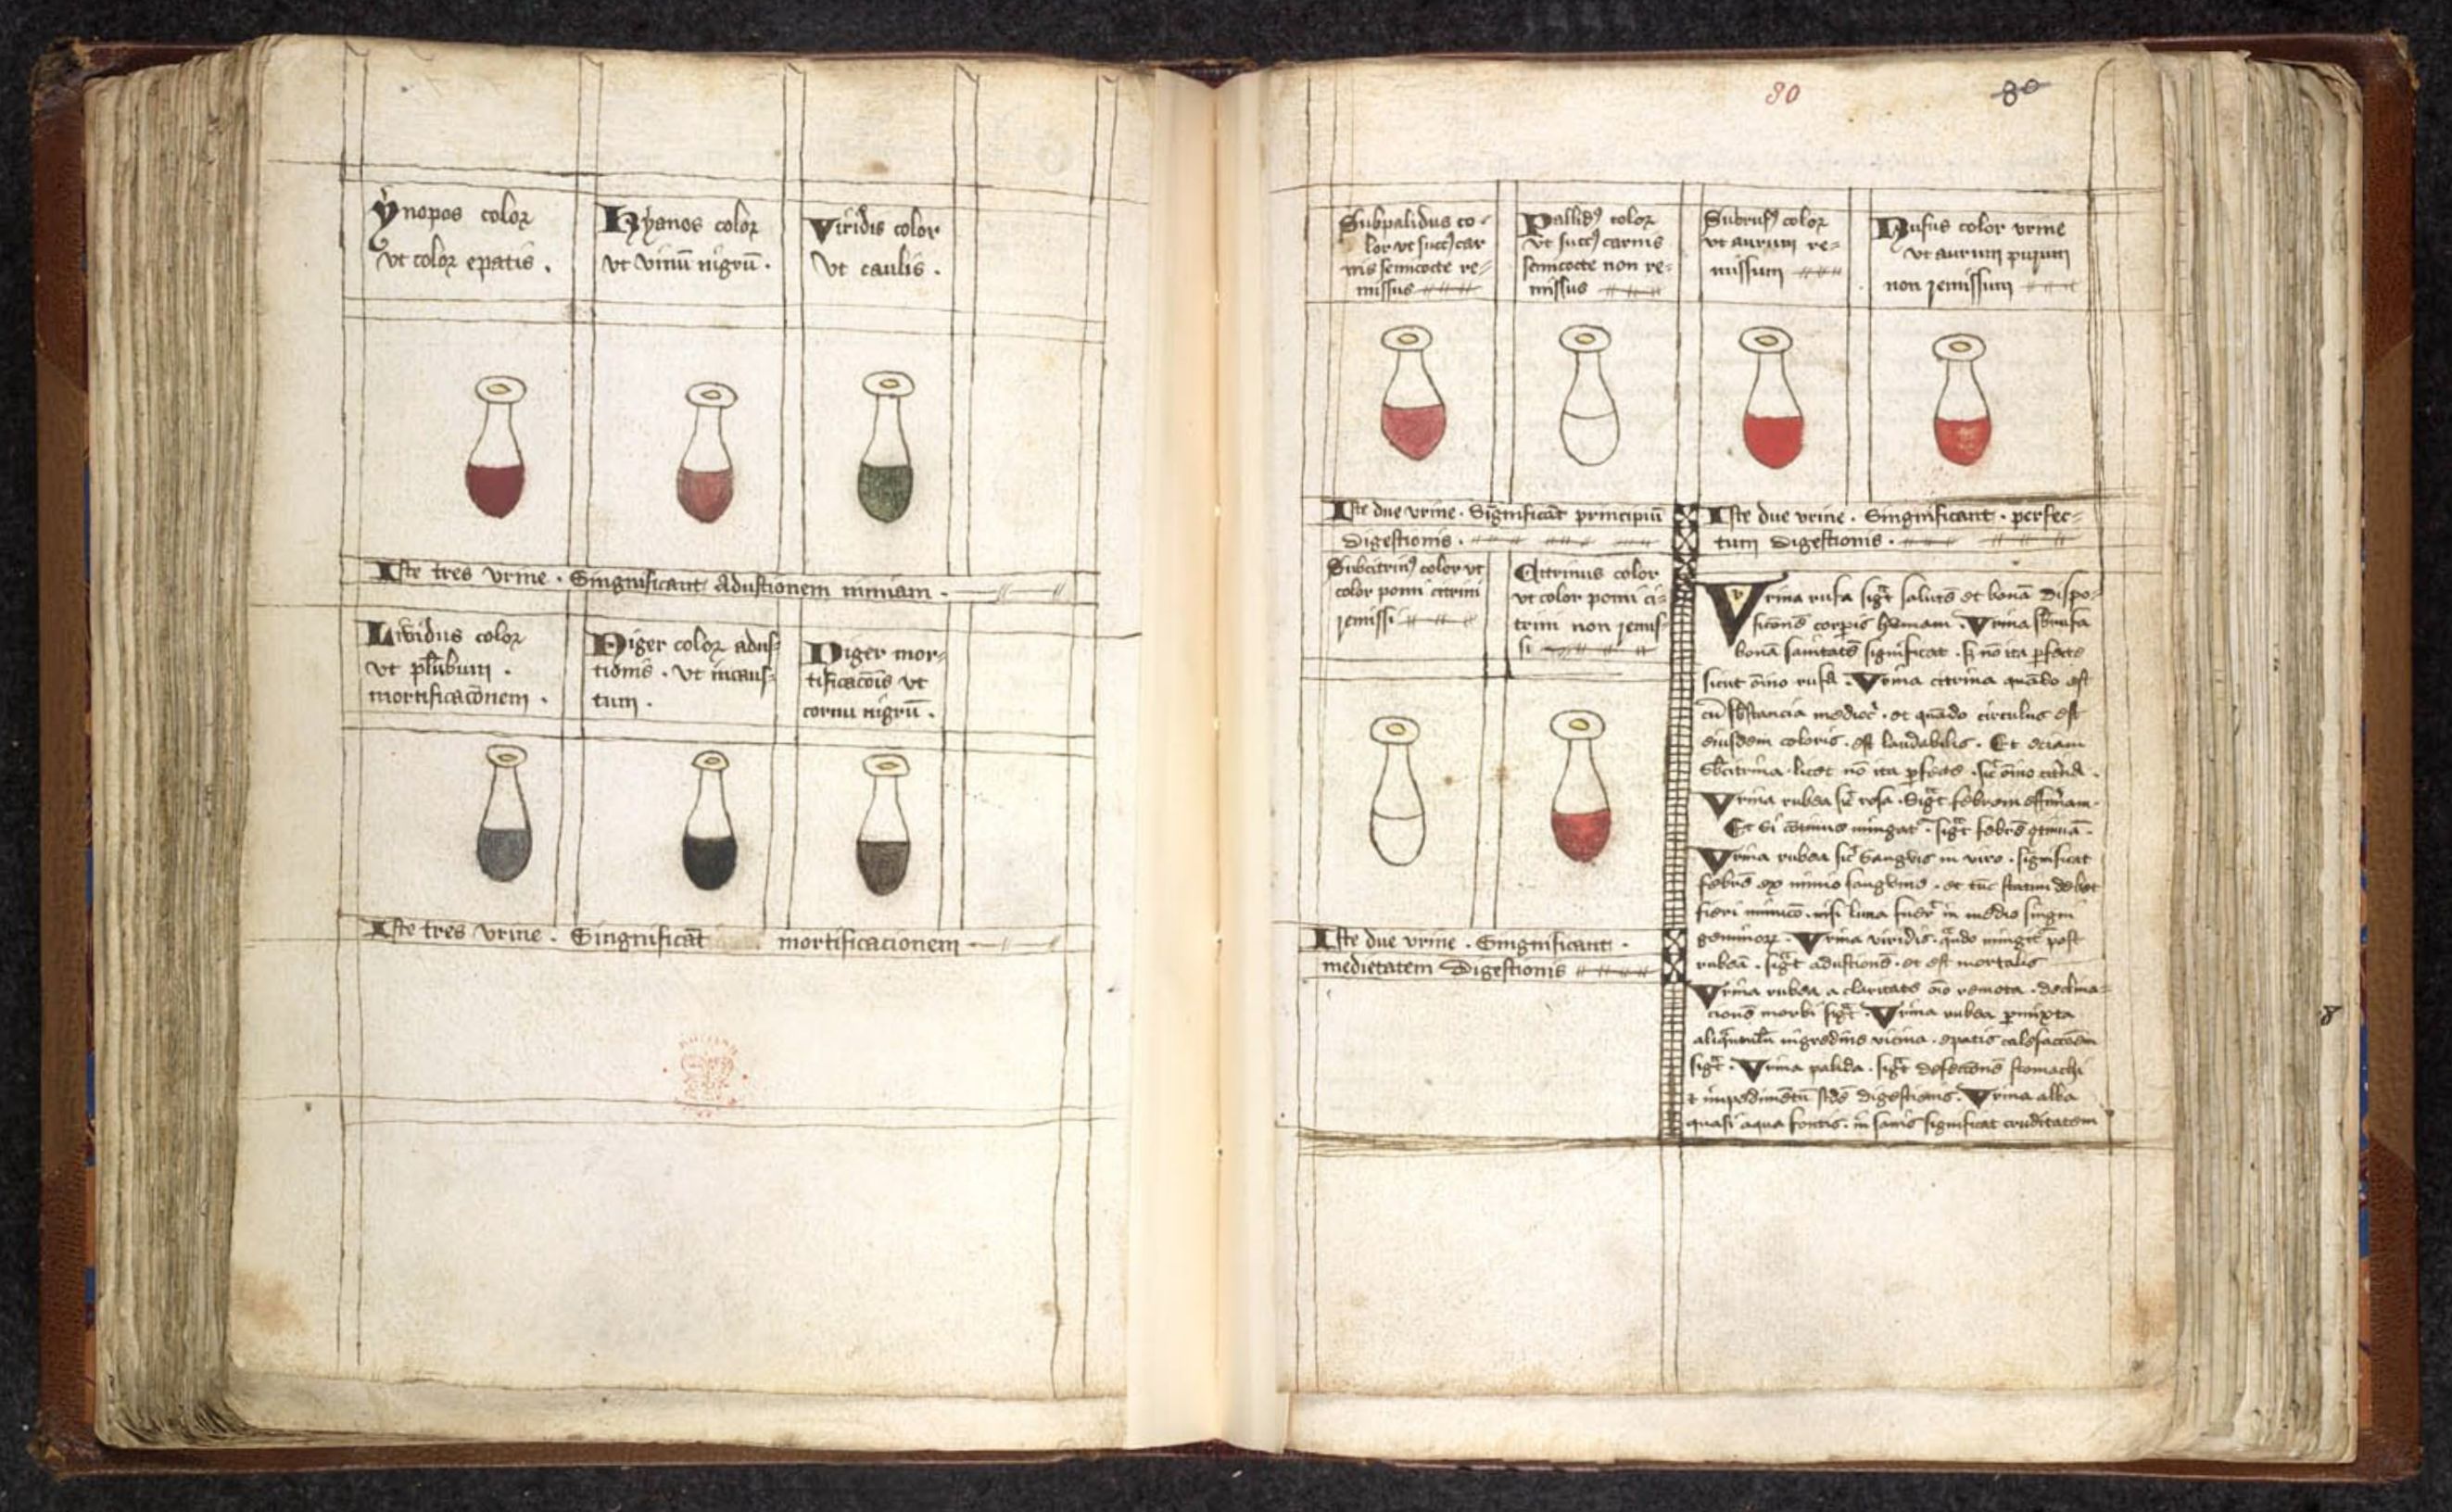 ynopos color
vt color epatis .
Kyanos color
vt vinū nigrū .
Viridis color
vt caulis .
Iste tres vrine . Singnificant Adustionem nimiam .
Lividus color
vt plūbum .
mortificacōnem .
Niger color adus
tionis . vt incaus
tum .
Niger mor-
tificacōis vt
cornu nigrū .
Iste tres vrine . Singnificāt mortificacionem
30
80
Subpalidus co-
lor vt succꝰ car
nis semicocte re-
missus
Pallidꝰ color
vt succꝰ carnis
semicocte non re-
missus
Subrufꝰ color
vt aurum re-
missum
Rufus color vrine
vt aurum purum
non remissum
Iste due vrine . Significāt principiū
digestionis .
Iste due vrine . Singnificant . perfec-
tum digestionis .
Subcitrinꝰ color vt
color pomi citrini
remissi
Citrinus color
vt color pomi ci-
trini non remis
si
Iste due vrine . Singnificant .
medietatem Digestionis
Vrina rufa sigt salutē et bonā dispo-
siconē corpis humani . Vrina sbrufa
bonā sanitatē significat . s nō ita pfecte
sicut oīno rufa . Vrina citrina quādo est
cū sbstancia medioc . et quādo circulus est
eiusdem coloris . est laudabilis . Et eciam
sbcitrina . licet nō ita pfecte . sic oīno
Vrina rubea sic rosa . sigt febrem effimam .
Et si cōtinue mingat . sigt febrē
Vrina rubea sic sangvis in vitro . significat
febrē ex nimio sangvine . et tūc statim debet
fieri minucō . nisi luna fuer in medio singni
geminorꝝ . Vrina viridis . qn̄do mingit post
rubeā . sigt adustionē . et est mortalis
Vrina rubea a claritate oīo remota . declina-
cionē morbi sigt . Vrina rubea pmixta
epatis calefaccōem
sigt . Vrina palida . sigt defeccionē stomachi
t impedimētū scde digestionis . Vrina alba
quasi aqua fontis . in sanis significat cruditatem
8